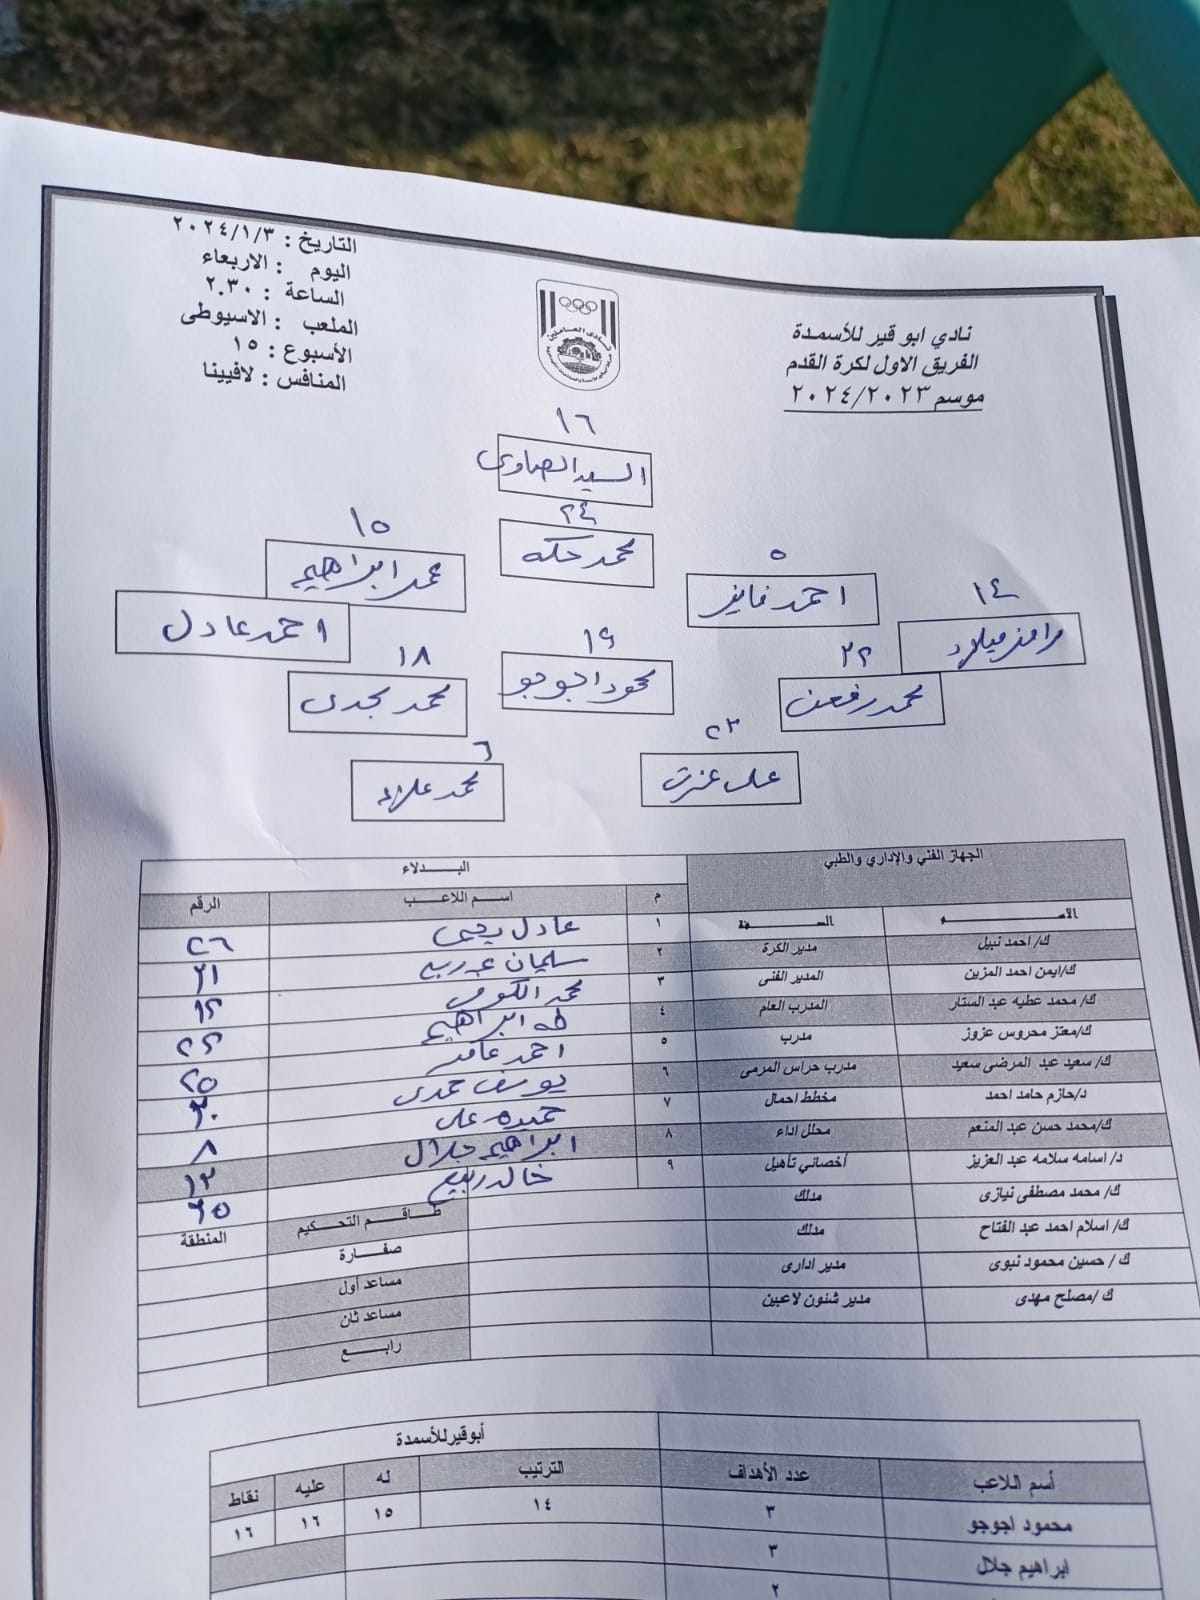 نادي ابو قير للأسمدة
الفريق الاول لكرة القدم
موسم ٢٠٢٤/٢٠٢٣
التاريخ : ٢٠٢٤/١/٣
اليوم : الاربعاء
الساعة : ٢.٣٠
الملعب : الاسيوطى
الأسبوع : ١٥
المنافس : لافيينا
نادى العاملين
١٦
السيد الصاوى
٢٤
محمد حكه
١٥
محمد ابراهيم
٥
احمد فايز
١٤
رامز ميلاد
احمد عادل
١٩
محمود اجوجو
١٨
محمد مجدى
٢٢
محمد رفعت
٢٣
على عزت
٦
محمد علاء
الجهاز الفني والإداري والطبي
البدلاء
الاسم الصفة م اسم اللاعب الرقم
ك/ احمد نبيل مدير الكرة
ك/ايمن احمد المزين المدير الفنى
ك/ محمد عطيه عبد الستار المدرب العام
ك/معتز محروس عزوز مدرب
ك/ سعيد عبد المرضى سعيد مدرب حراس المرمى
د/حازم حامد احمد مخطط احمال
ك/محمد حسن عبد المنعم محلل اداء
د/ اسامه سلامه عبد العزيز أخصائي تأهيل
ك/ محمد مصطفى نيازى مدلك
ك/ اسلام احمد عبد الفتاح مدلك
ك / حسين محمود نبوى مدير ادارى
ك /مصلح مهدى مدير شئون لاعبين
١ عادل يحيى ٢٦
٢ سليمان ٢١
٣ محمد الكومى
٤ طه ابراهيم ٢٢
٥ احمد عامر ٢٥
٦ يوسف حمدى ٣٠
٧ حميده على ٨
٨ ابراهيم جلال ١٣
٩ خالد ربيع
طاقم التحكيم المنطقة
صفارة
مساعد أول
مساعد ثان
رابع
أبوقير للأسمدة
أسم اللاعب عدد الأهداف الترتيب له عليه نقاط
محمود اجوجو ٣ ١٤ ١٥ ١٦ ١٦
ابراهيم جلال ٣
٢